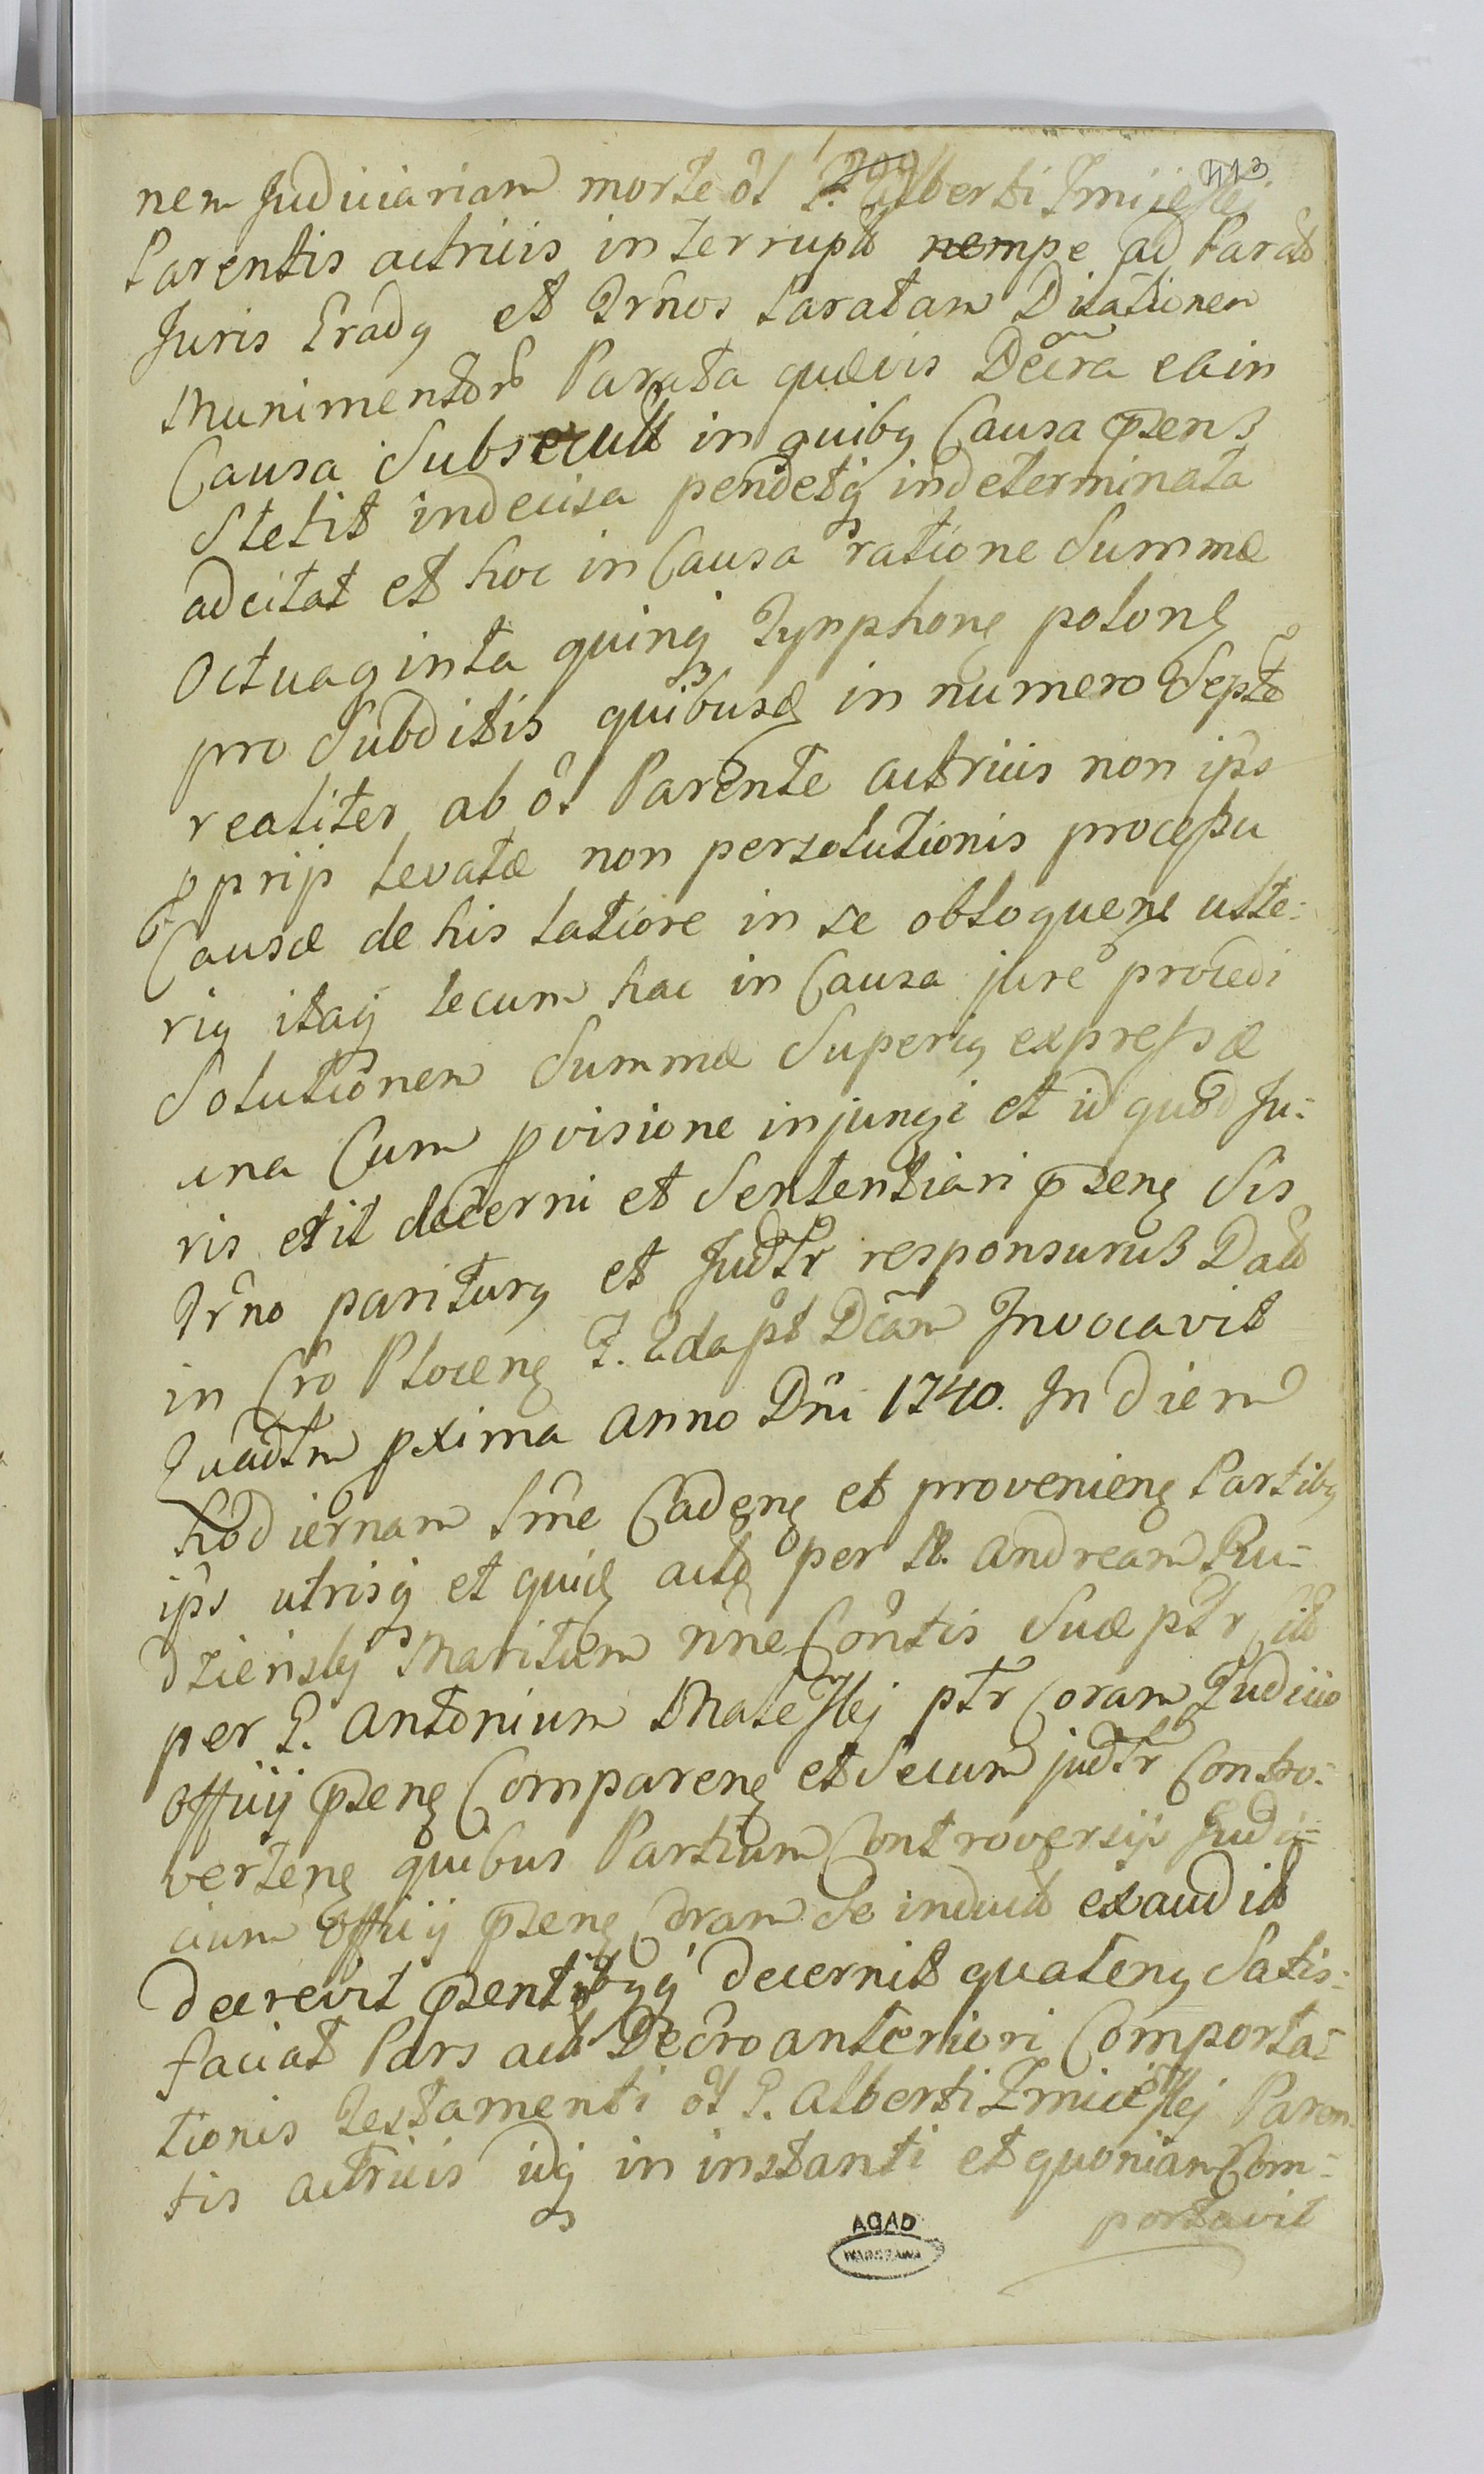 413
nem Judiciariam morte ol G. Alberti Zmijewskj
Parentis actricis interrupt nempe ad Parat
Juris Grady et Trnos Paratam Dilationem
Munimentor Parata quævis Decra ea in
Causa Subsecutt in quiby Causa pzens
Stetit indecisa pendetq indeterminata
adcitat et hoc in Causa ratione Summæ
Octuaginta quinq Tynphone polone
pro Subditis quibusd in numero Septe
realiter ab ol Parente actricis non ips
pprijs levatæ non persolutionis processu
Causæ de his latiore in se obloquene ulte=
riy itaq tecum hac in Causa jure procedi
Solutionem Summæ Superiy expressæ
una Cum pvisione injungi et id quod Ju=
ris erit decerni et Sententiari pzene Sis
Trno pariturg et Judtr responsurus Dat
in Cro Plocene F. 2da pt Dcam Invocavit
Quadtm pxima Anno Dni 1740. In diem
hodiernam tme Cadene et proveniene Partiby
ips utrisq et quid act per N. Andream Ru=
dzienskj Maritum nne Contis Suæ ptr Cit
per G. Antonium Maleskj ptr Coram Judicio
Officij pzene Comparene et Secum judtr Contro=
vertene quibus Partium Controversijs Judi=
cium Officij pzene Coram Se induct exaudit
decrevit pzentibyq decernit quateny Satis=
faciat Pars act Decro anteriori Comporta=
tionis Testamenti ol G. Alberti Zmijewskj Paren
tis actricis idq in instanti et quoniam Com=
portavit
AGAD
WARSZAWA